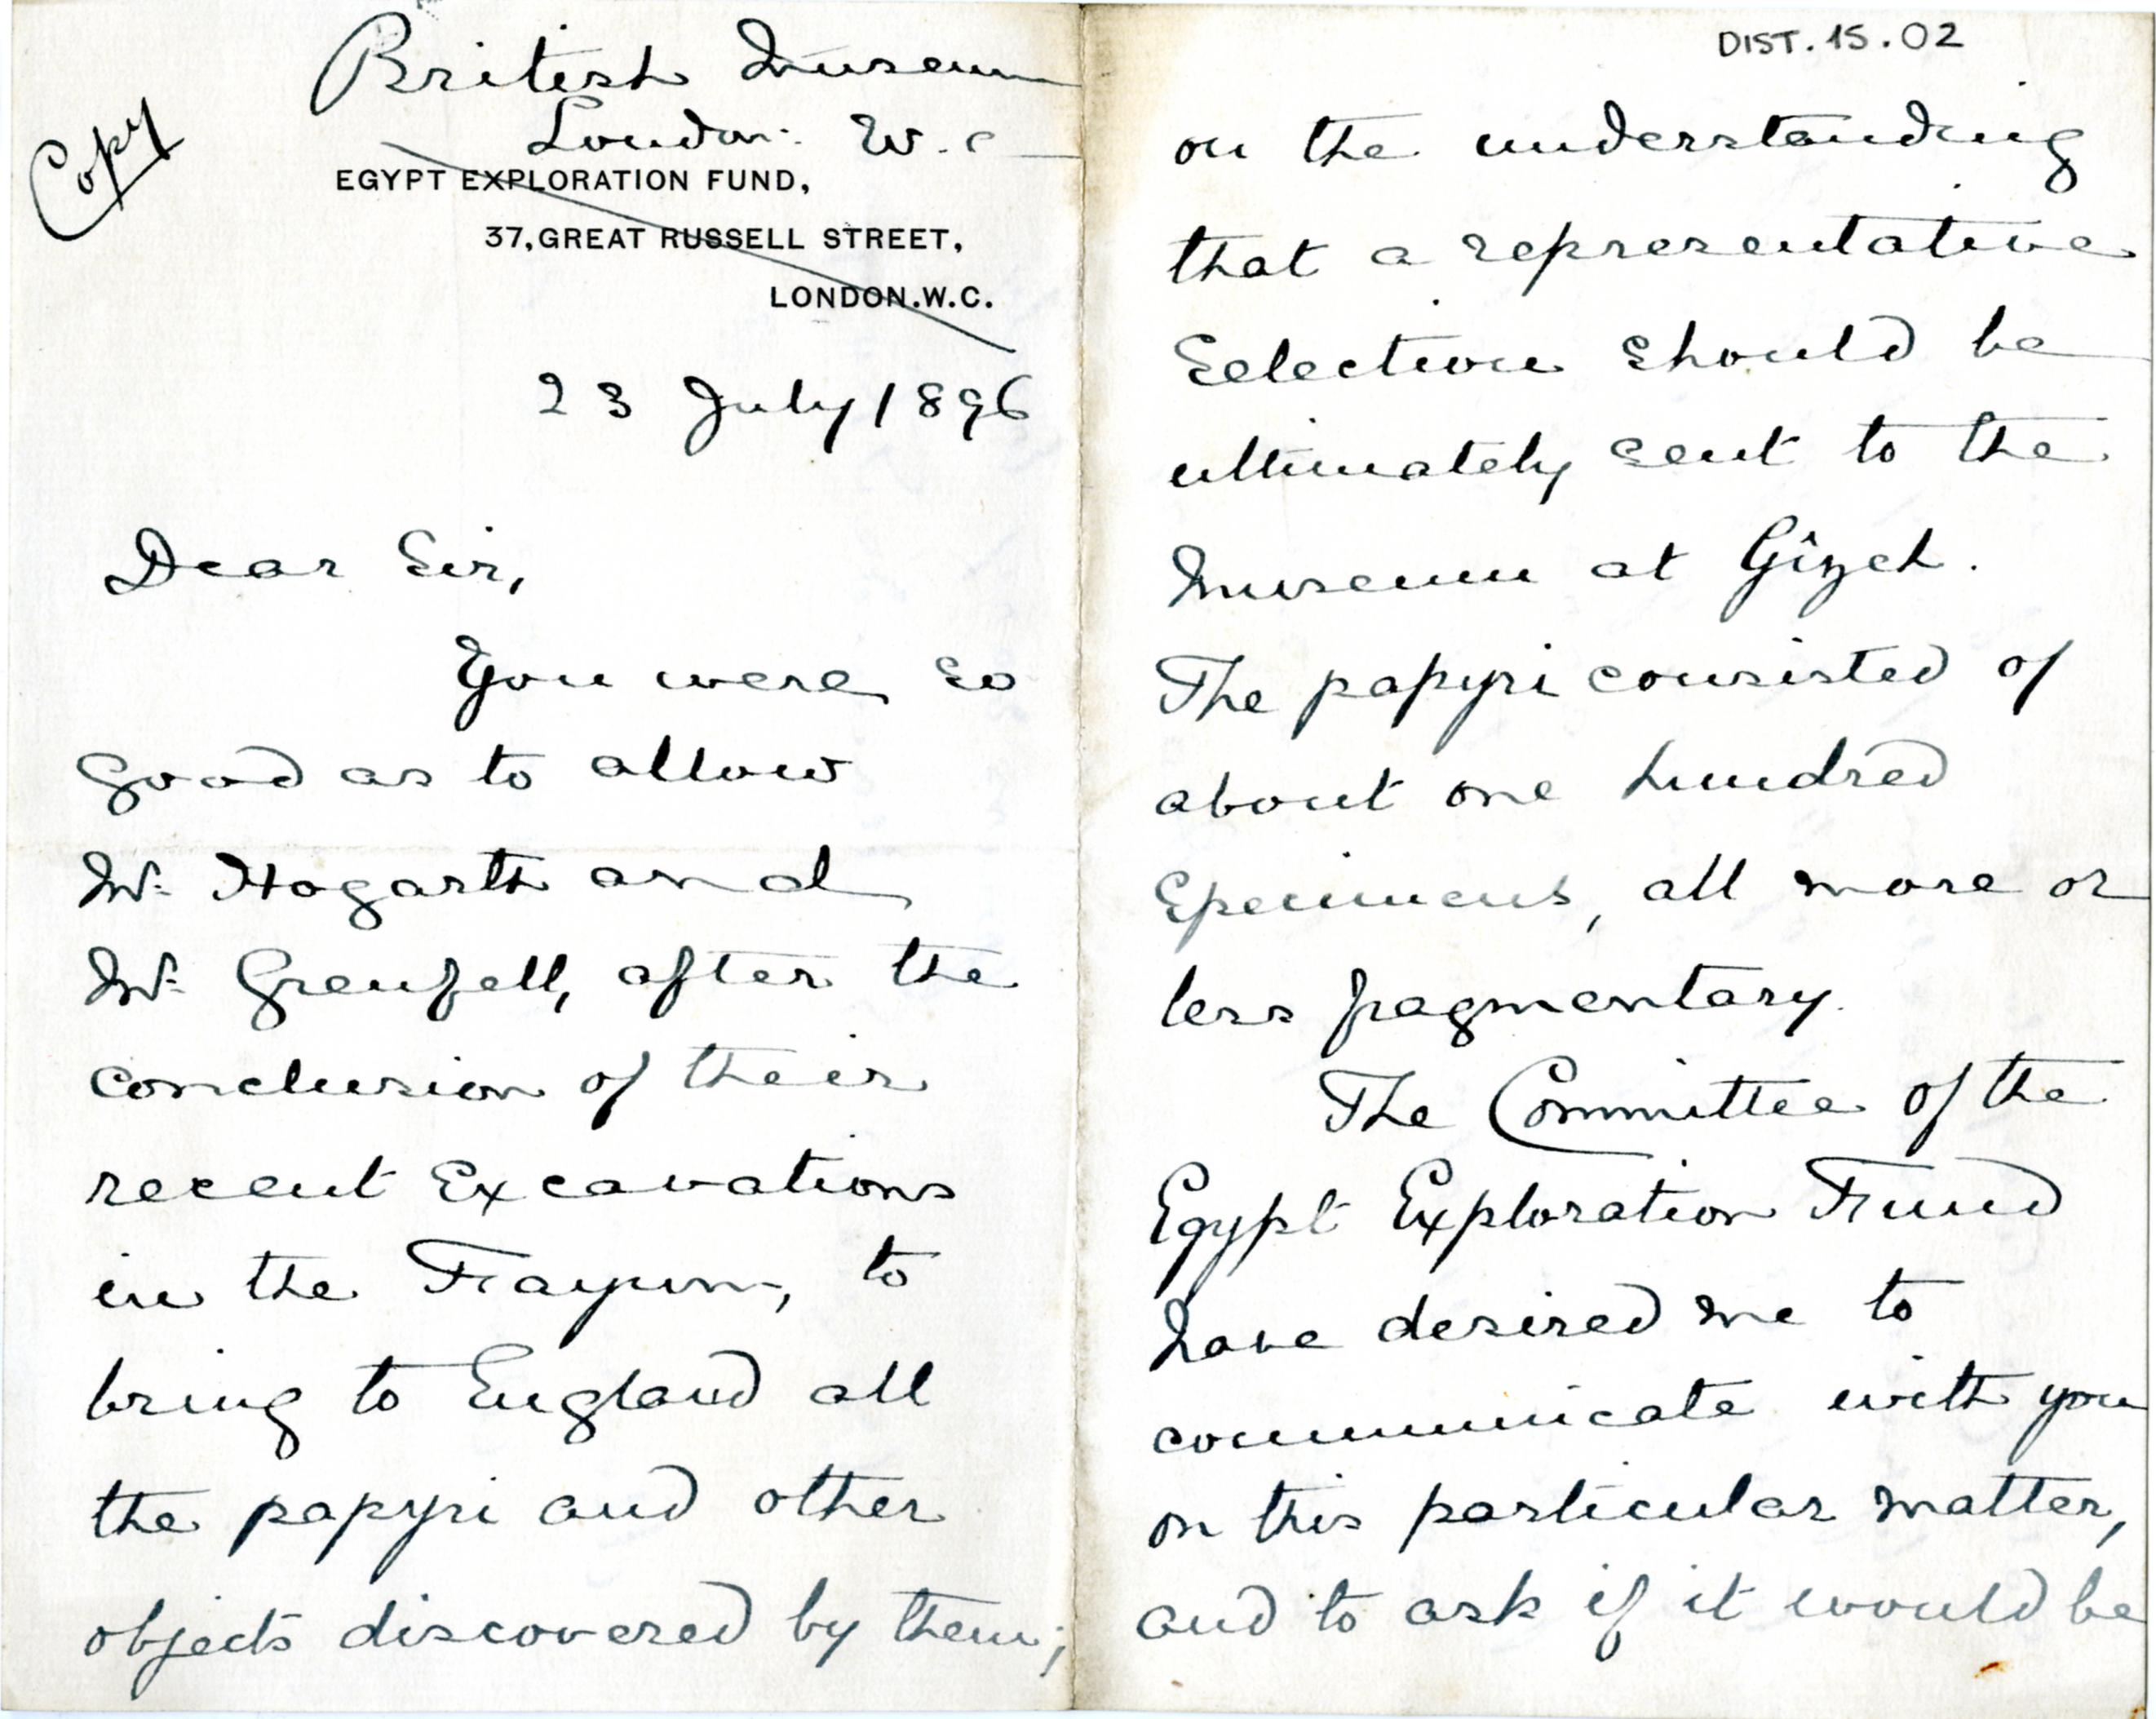 Copy
British Museum
London. W.C
EGYPT EXPLORATION FUND,
37, GREAT RUSSELL STREET,
LONDON. W.C.
23 July 1896
Dear Sir,
You were so
good as to allow
Mr. Hogarth and
Mr. Grenfell, after the
conclusion of their
recent Excavations
in the Fayum, to
bring to England all
the papyri and other
objects discovered by them;
DIST. 15.02
on the understanding
that a representative
Selection should be
ultimately sent to the
Museum at Gîzeh.
The papyri consisted of
about one hundred
Specimens, all more or
less fragmentary.
The Committee of the
Egypt Exploration Fund
have desired me to
communicate with you
on this particular matter,
and to ask if it would be